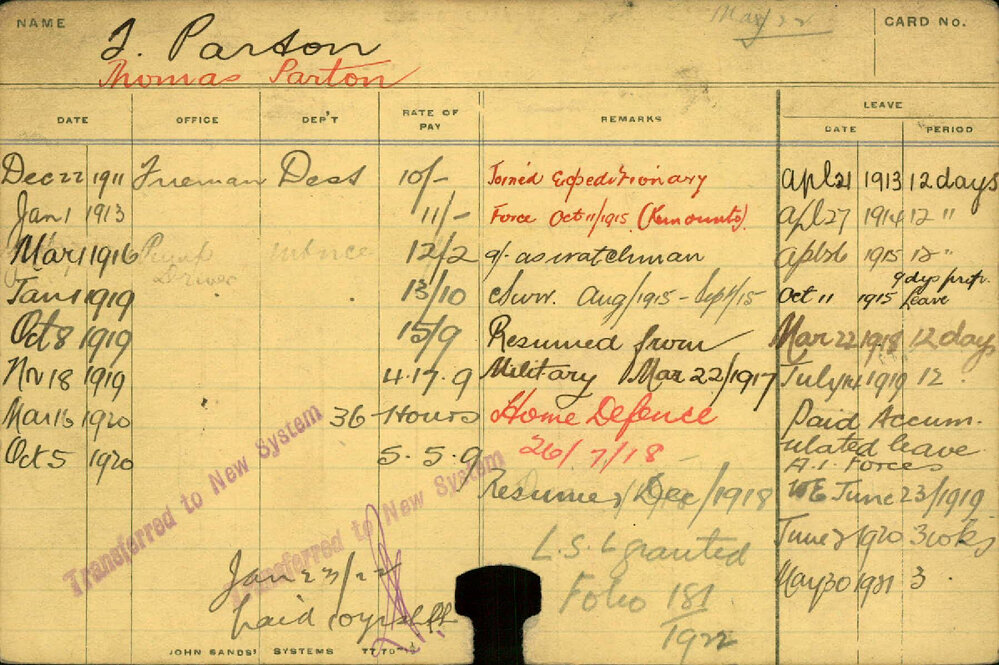 NAME
T. Parton
Thomas Parton
May/22
CARD No.
DATE OFFICE DEP'T RATE OF PAY REMARKS LEAVE
DATE PERIOD
Dec 22 1911 Fireman Dest 10/- Joined Expeditionary Apl 21 1913 12 days
Jan 1 1913 11/- Force Oct 11/1915 (Remounts). Apl 27 1914 12 "
Mar 1 1916 Pump Driver 12/2 as watchman Apl 26 1915 12 "
Jan 1 1919 13/10 Aug/1915 - Sept/15 Oct 11 1915 9 dys Leave
Oct 8 1919 15/9 Resumed from Mar 22 1918 12 days
Nov 18 1919 4.17.9 Military Mar 22/1917 July 14 1919 12
Mar 16 1920 36 Hours Home Defence Paid Accum-
Oct 5 1920 5.5.9 26/7/18 ulated leave
A.I. Forces
Resumed Dec/1918 WE June 23/1919
L.S.L granted June 2 1920 3 wks
Folio 181/1922 May 30 1921 3
Transferred to New System
Transferred to New System
Jan 23/22
paid
JOHN SANDS' SYSTEMS